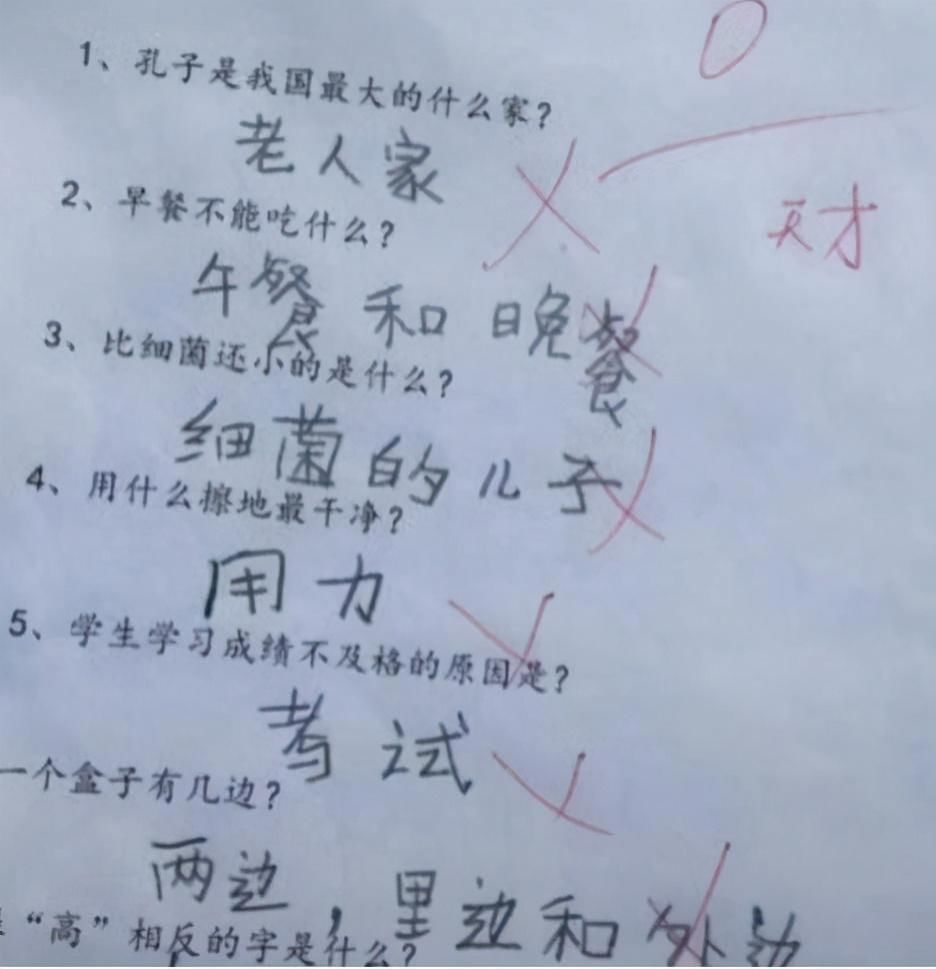 0
1、孔子是我国最大的什么家?
老人家
天才
2、早餐不能吃什么?
午餐和晚餐
3、比细菌还小的是什么?
细菌的儿子
4、用什么擦地最干净?
用力
5、学生学习成绩不及格的原因是?
考试
一个盒子有几边?
两边,里边和外边
“高”相反的字是什么?